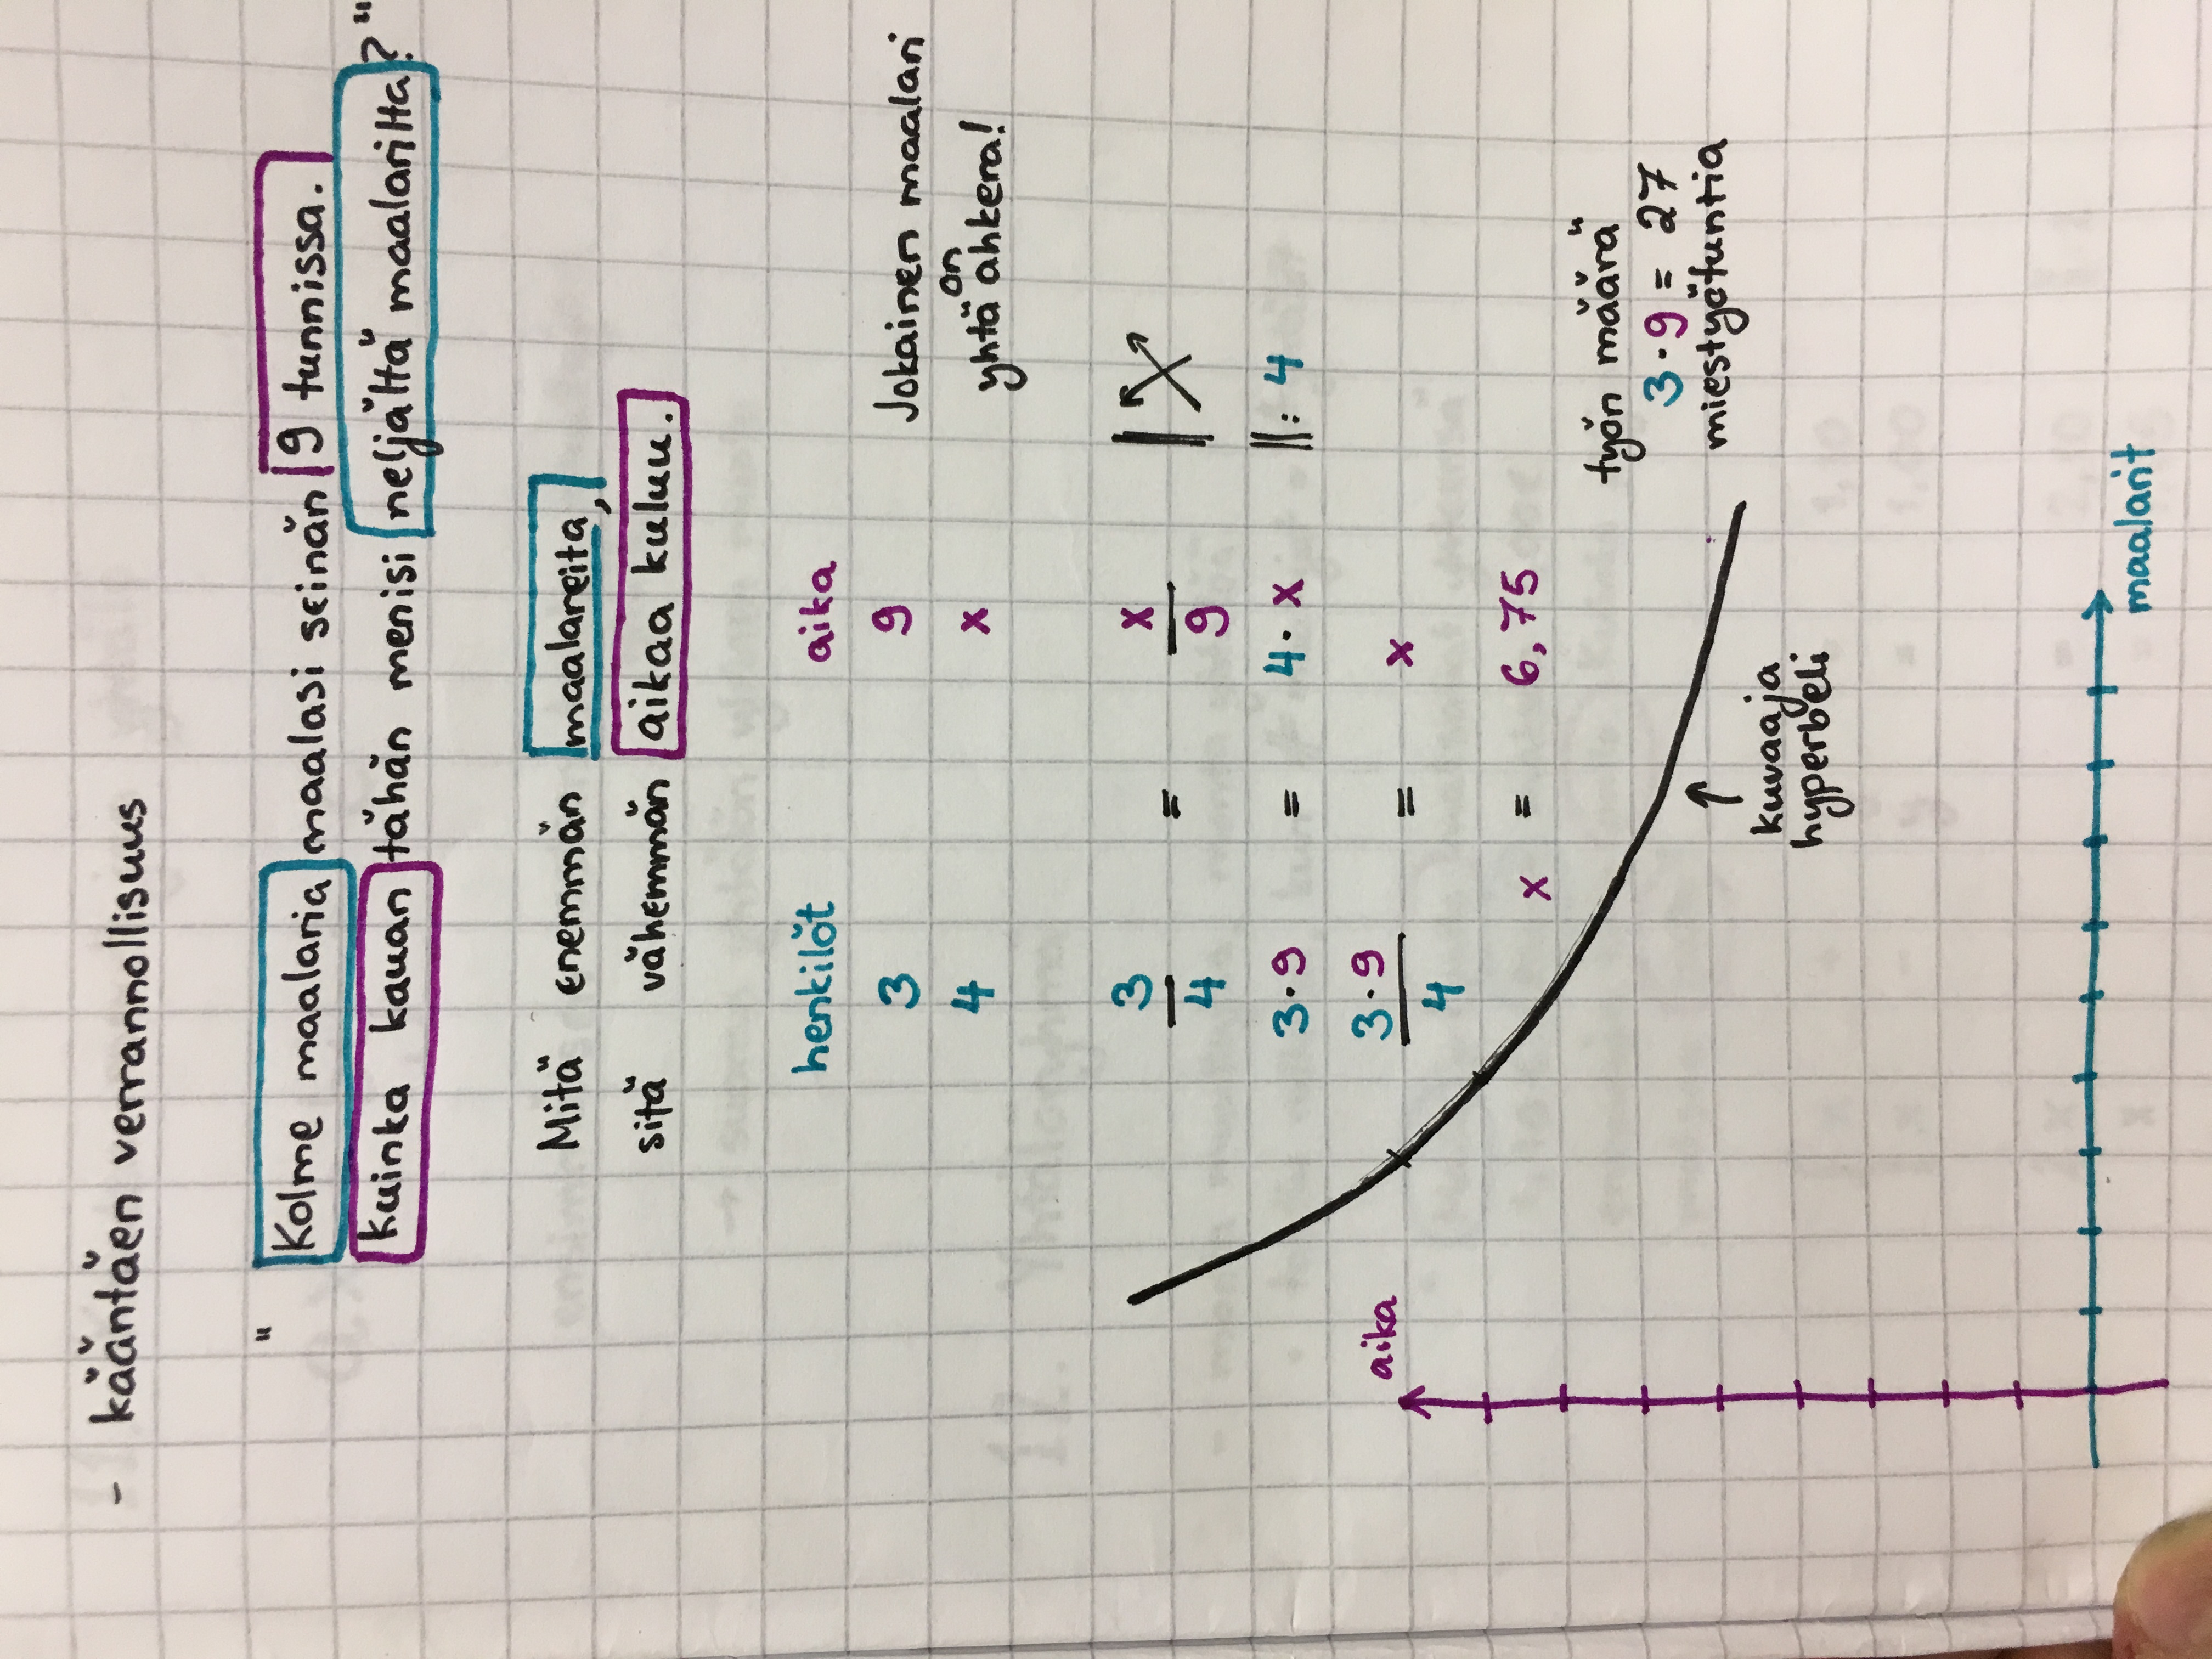 - kääntäen verrannollisuus
"Kolme maalaria maalasi seinän 9 tunnissa.
Kuinka kauan tähän menisi neljältä maalarilta?"
Mitä enemmän maalareita,
sitä vähemmän aikaa kuluu.
henkilöt aika
3 9 Jokainen maalari
4 x on
yhtä ahkera!
3/4 = x/9 ||
3·9 = 4·x ||:4
3·9/4 = x
x = 6,75
aika
työn määrä
3·9 = 27
miestyötuntia
↑
kuvaaja
hyperbeli
maalarit